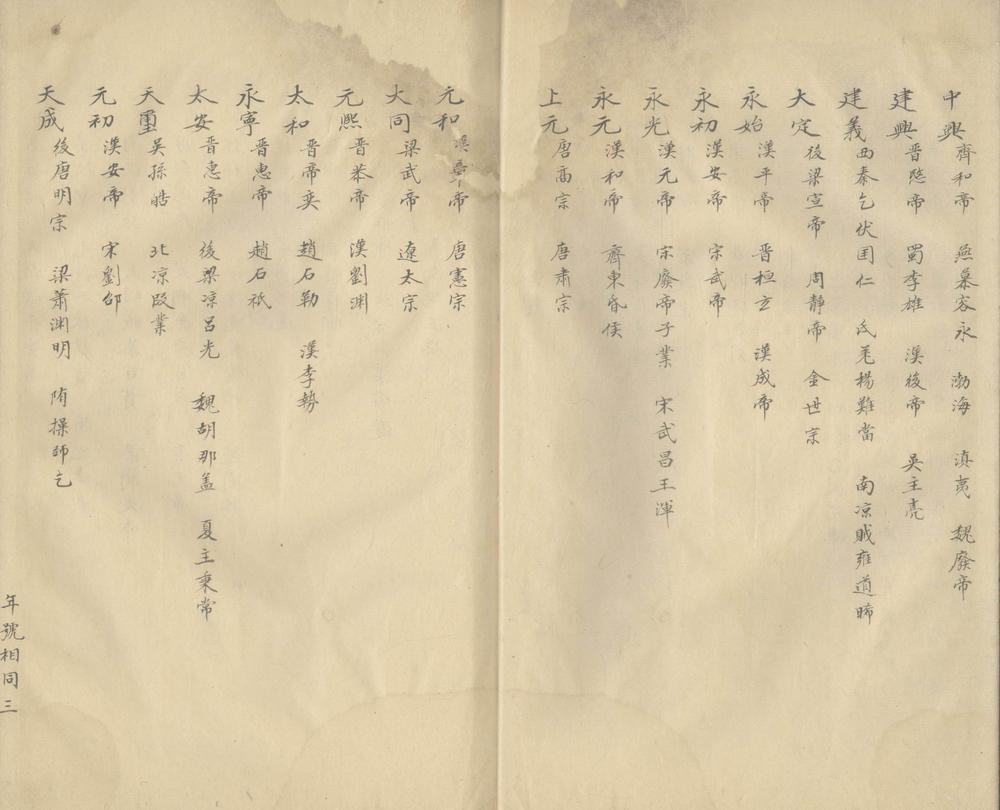 中興 齊和帝 燕慕容永 渤海 滇夷 魏廢帝
建興 晋愍帝 蜀李雄 漢後帝 吳主亮
建義 西秦乞伏国仁 氐羌楊難當 南凉賊雍道晞
大定 後梁宣帝 周靜帝 金世宗
永始 漢平帝 晋桓玄 漢成帝
永初 漢安帝 宋武帝
永光 漢元帝 宗廢帝子業 宋武昌王渾
永元 漢和帝 齊東昏侯
上元 唐高宗 唐肅宗
元和 漢章帝 唐憲宗
大同 梁武帝 遼太宗
元熙 晋恭帝 漢劉渊
太和 晋帝奕 趙石勒 漢李勢
永寧 晋惠帝 趙石祗
太安 晋惠帝 後梁凉呂光 魏胡那盖 夏主秉常
天璽 吴孫皓 北凉段業
元初 漢安帝 宋劉邵
天成 後唐明宗 梁蕭渊明 隋操師乞
年號相同 三